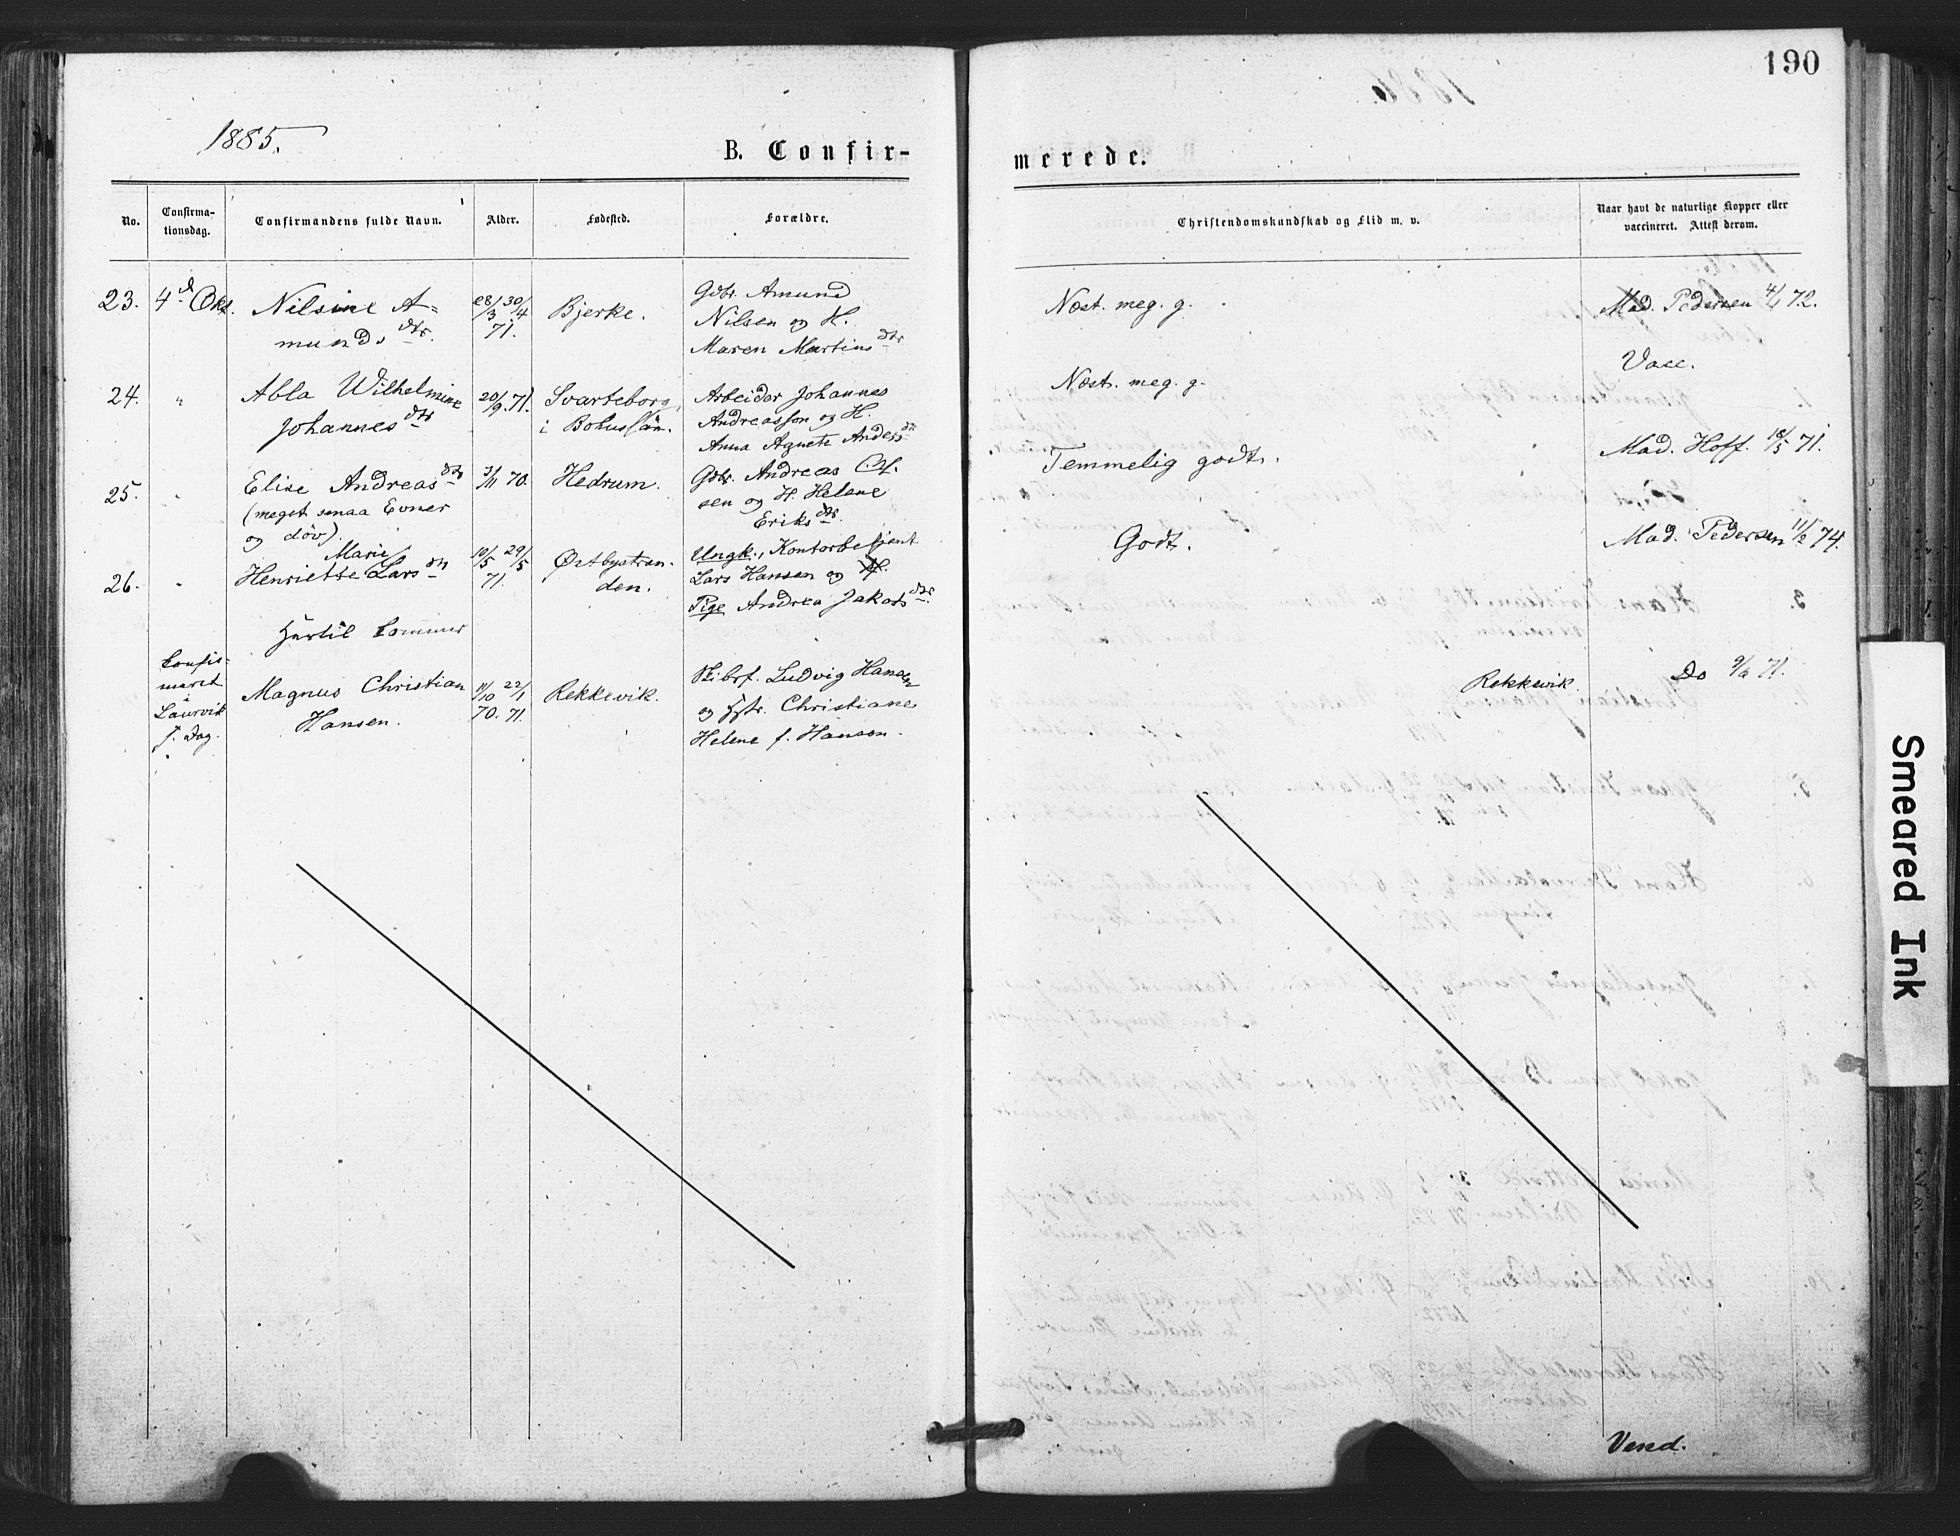 190
1885.
B. Confir-
merede.
No.
Confirma-
tionsdag.
Confirmandens fulde Navn.
Alder.
Fødested.
Forældre.
Christendomskundskab og Flid m. v.
Naar havt de naturlige Kopper eller
vaccineret. Attest derom.
23.
4d Okt.
Nilsine A-
mundsdtr.
28/3 30/4
71.
Bjerke.
Gdbr. Amund
Nilsen og H.
Maren Martinsdtr
Nost. meg. g.
Mad. Pedersen 4/1 72.
24.
"
Abla Wilhelmine
Johannesdtr
20/9. 71.
Svarteborg,
i Bohuslän.
Arbeider Johannes
Andreasson og H.
Anna Agnete Andersdtr
Nost. meg. g.
Vacc.
25.
"
Elise Andreasdtr
(meget smaa Evner
og døv).
3/11 70.
Hedrum.
Gdbr. Andreas Ol-
sen og H. Helene
Eriksdtr.
Temmelig godt.
Mad. Hoff. 18/5 71.
26.
"
Marie
Henriette Larsdtr
10/5 29/5
71.
Østbystran-
den.
Ungk., Kontorbetjent
Lars Hansen og H.
Pige Andrea Jakobsdtr.
Godt.
Mad. Pedersen 11/2 74.
Hertil kommer
Confir-
meret
i
Laurvik
s. Dag.
Magnus Christian
Hansen.
11/10 22/1
70. 71.
Rekkevik.
Skibrf. Ludvig Hansen
og Hstr. Christiane
Helene f. Hansen.
Rekkevik.
Do 71.
Vend.
Smeared Ink